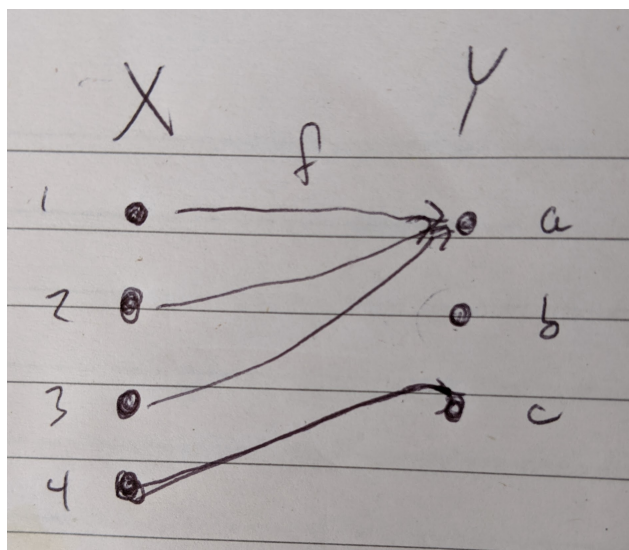 X Y
f
1 a
2 b
3 c
4